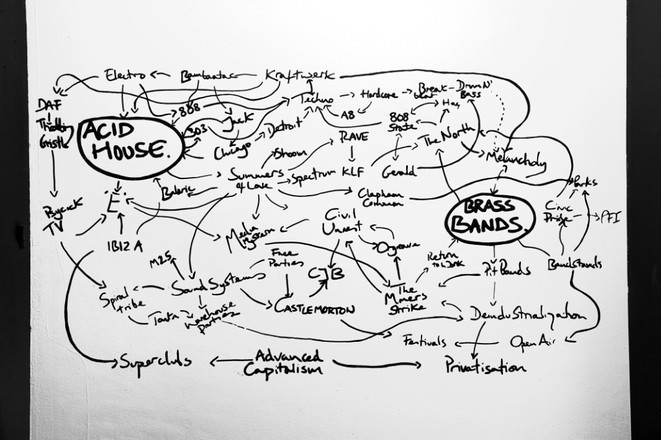 Electro
Bambaataa
Kraftwerk
DAF
808
Techno
Hardcore
Break-
beat
Drum N'
Bass
Throbbing
Gristle
ACID
HOUSE.
303
Jack
Detroit
A8
808
State
Chicago
RAVE
The North
Melancholy
Shoom
Summers
of Love
Spectrum
KLF
Gerald
Balearic
Clapham
Common
Parks
Psychick
TV
'E'
BRASS
BANDS.
Civic
Pride
PFI
Civil
Unrest
Media
Hysteria
IBIZA
M25
Free
Parties
CJB
Orgreave
Pit Bands
Bandstands
Spiral
tribe
Sound Systems
The
Miners
Strike
CASTLEMORTON
Warehouse
parties
Deindustrialization
Festivals
Open Air
Superclubs
Advanced
Capitalism
Privatisation